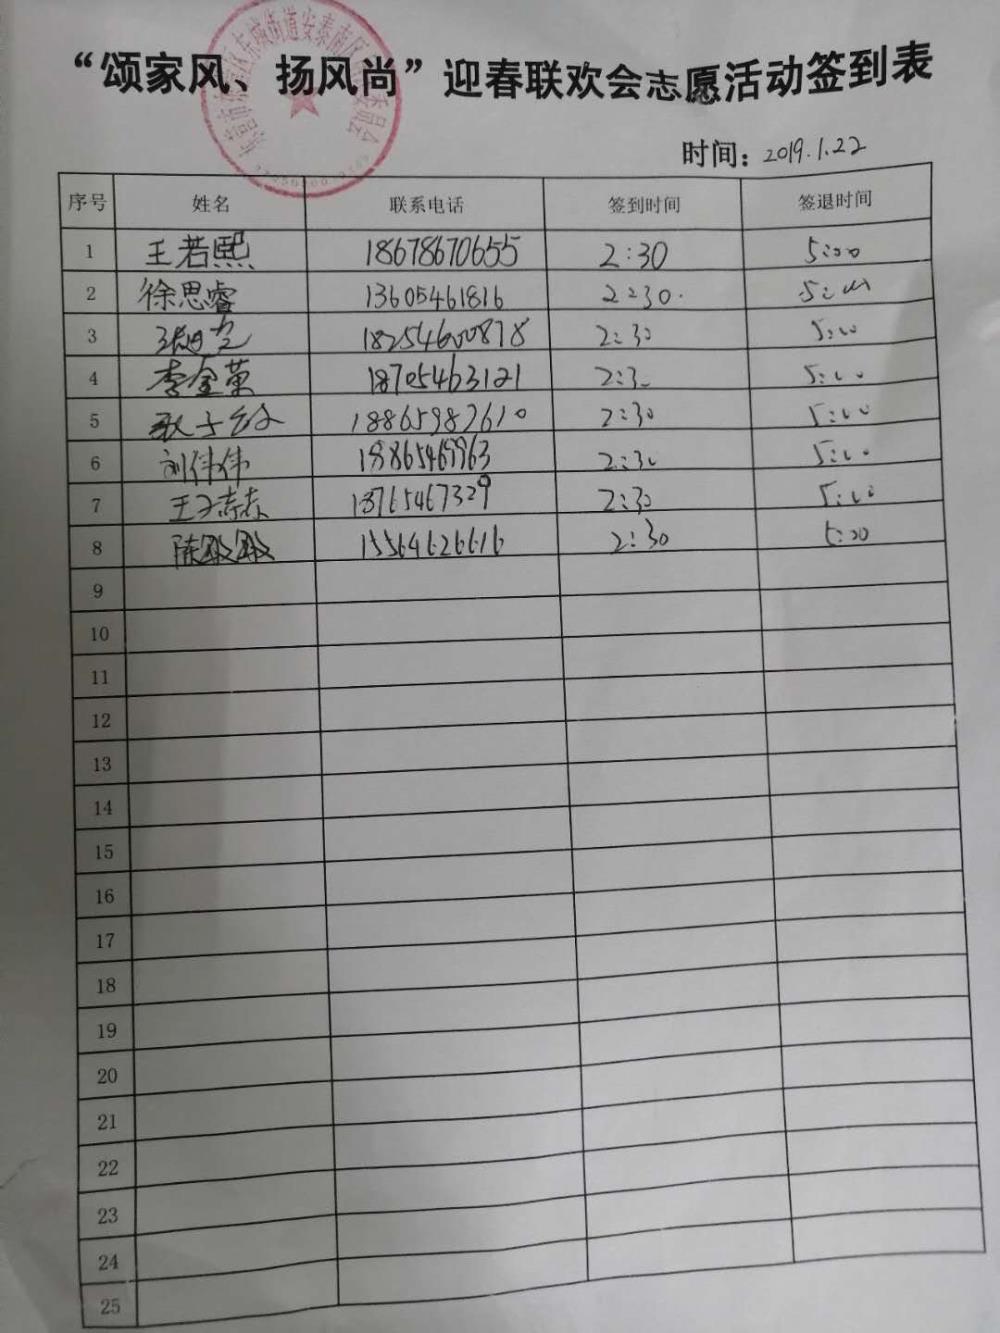 “颂家风、扬风尚”迎春联欢会志愿活动签到表
时间：2019.1.22
序号 姓名 联系电话 签到时间 签退时间
1 王若熙 18678670655 2:30 5:00
2 徐思睿 13605461816 2:30. 5:00
3 18254600878 2:30 5:00
4 李金莱 18705463121 2:30 5:00
5 耿子 18865982610 2:30 5:00
6 刘伟伟 18865469963 2:30 5:00
7 王 18765467329 2:30 5:00
8 陈敏敏 15564626616 2:30 5:00
9
10
11
12
13
14
15
16
17
18
19
20
21
22
23
24
25